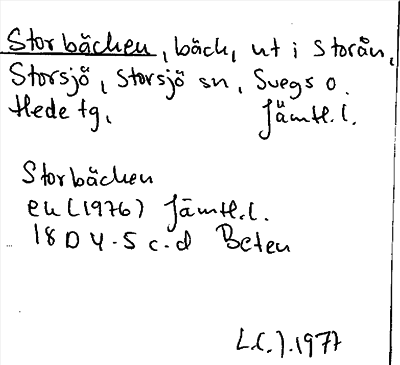 Storbäcken, bäck, ut i Storån,
Storsjö, Storsjö sn, Svegs o.
Hede tg, Jämtl.l.
Storbäcken
ek (1976) Jämtl.l.
18 D 4-5 c-d Beten
L.C.J. 1977